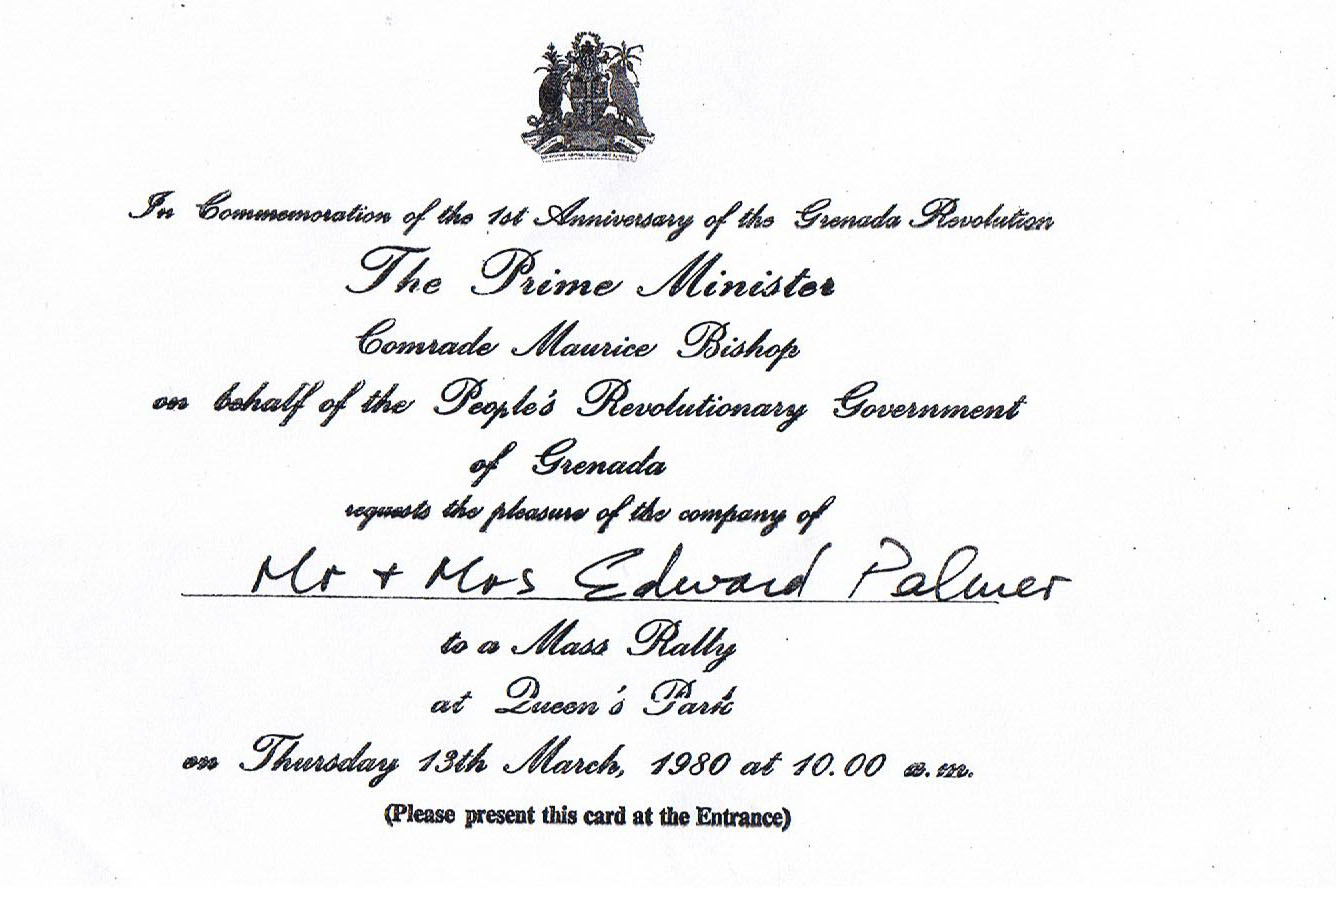 In Commemoration of the 1st Anniversary of the Grenada Revolution
The Prime Minister
Comrade Maurice Bishop
on behalf of the People's Revolutionary Government
of Grenada
requests the pleasure of the company of
Mr + Mrs Edward Palmer
to a Mass Rally
at Queen's Park
on Thursday 13th March, 1980 at 10.00 a.m.
(Please present this card at the Entrance)